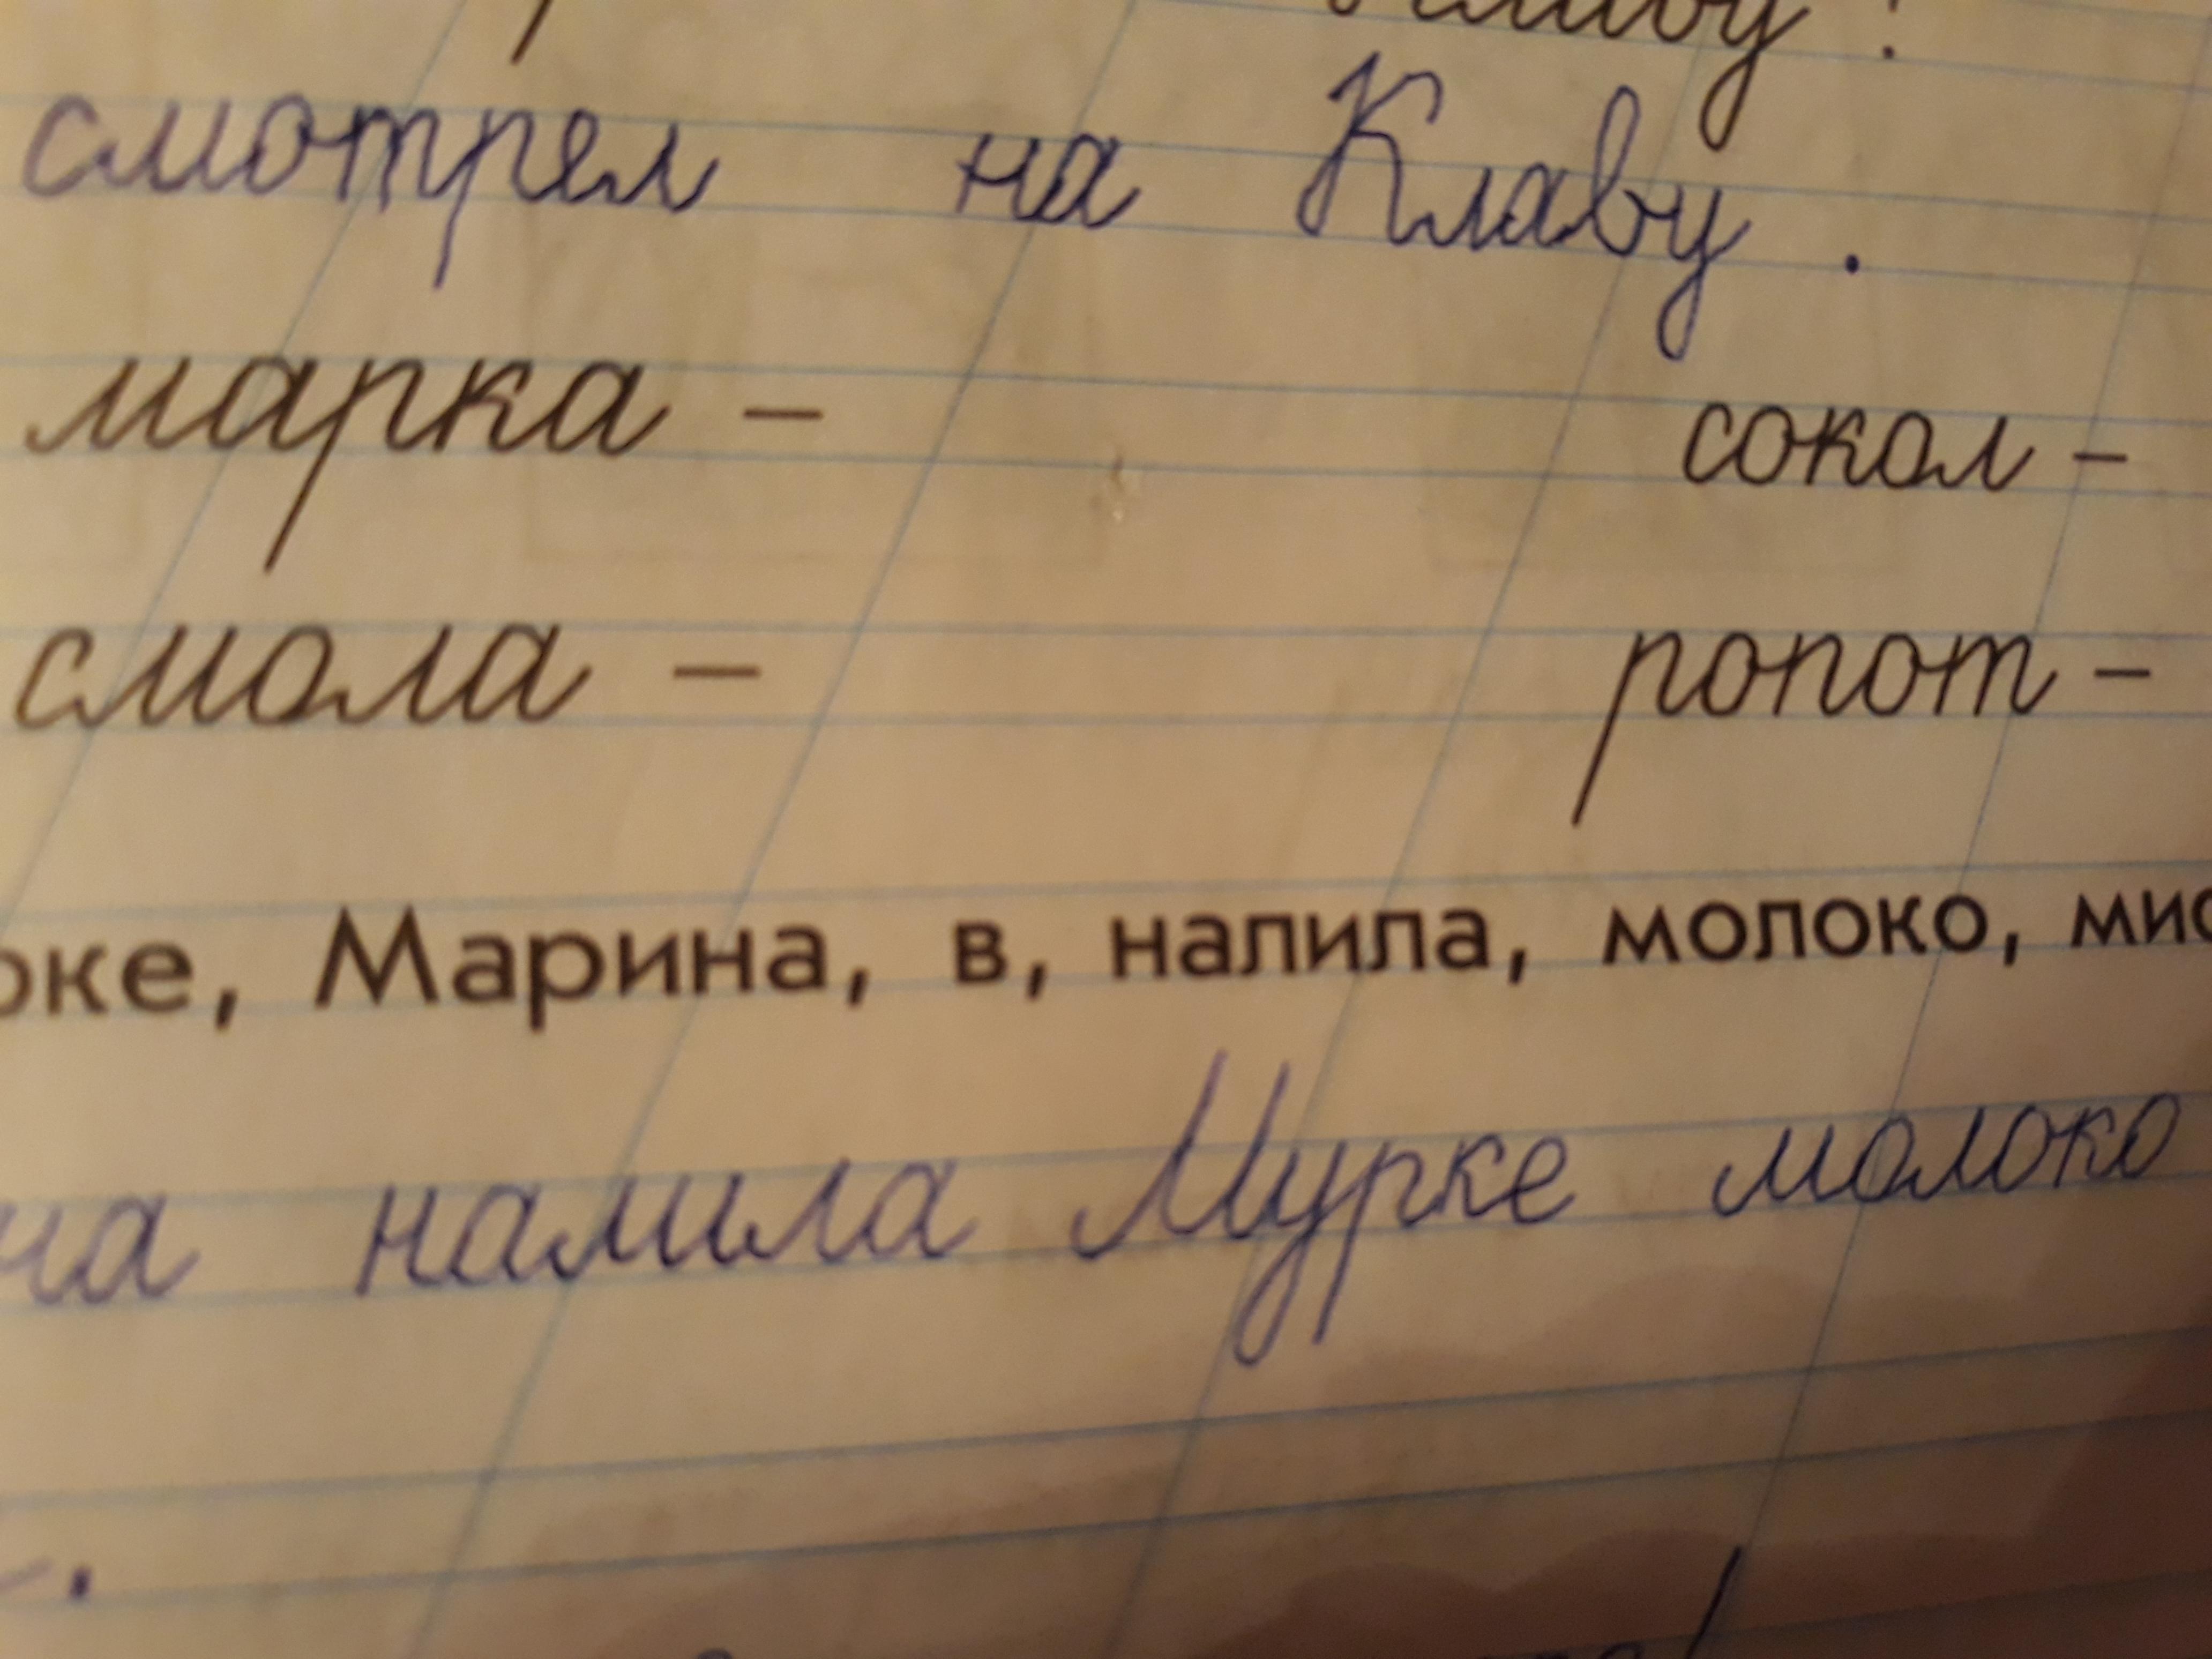 смотрел на Клаву.
марка – сокол –
смола – ропот –
Марина, в, налила, молоко,
налила Мурке молоко